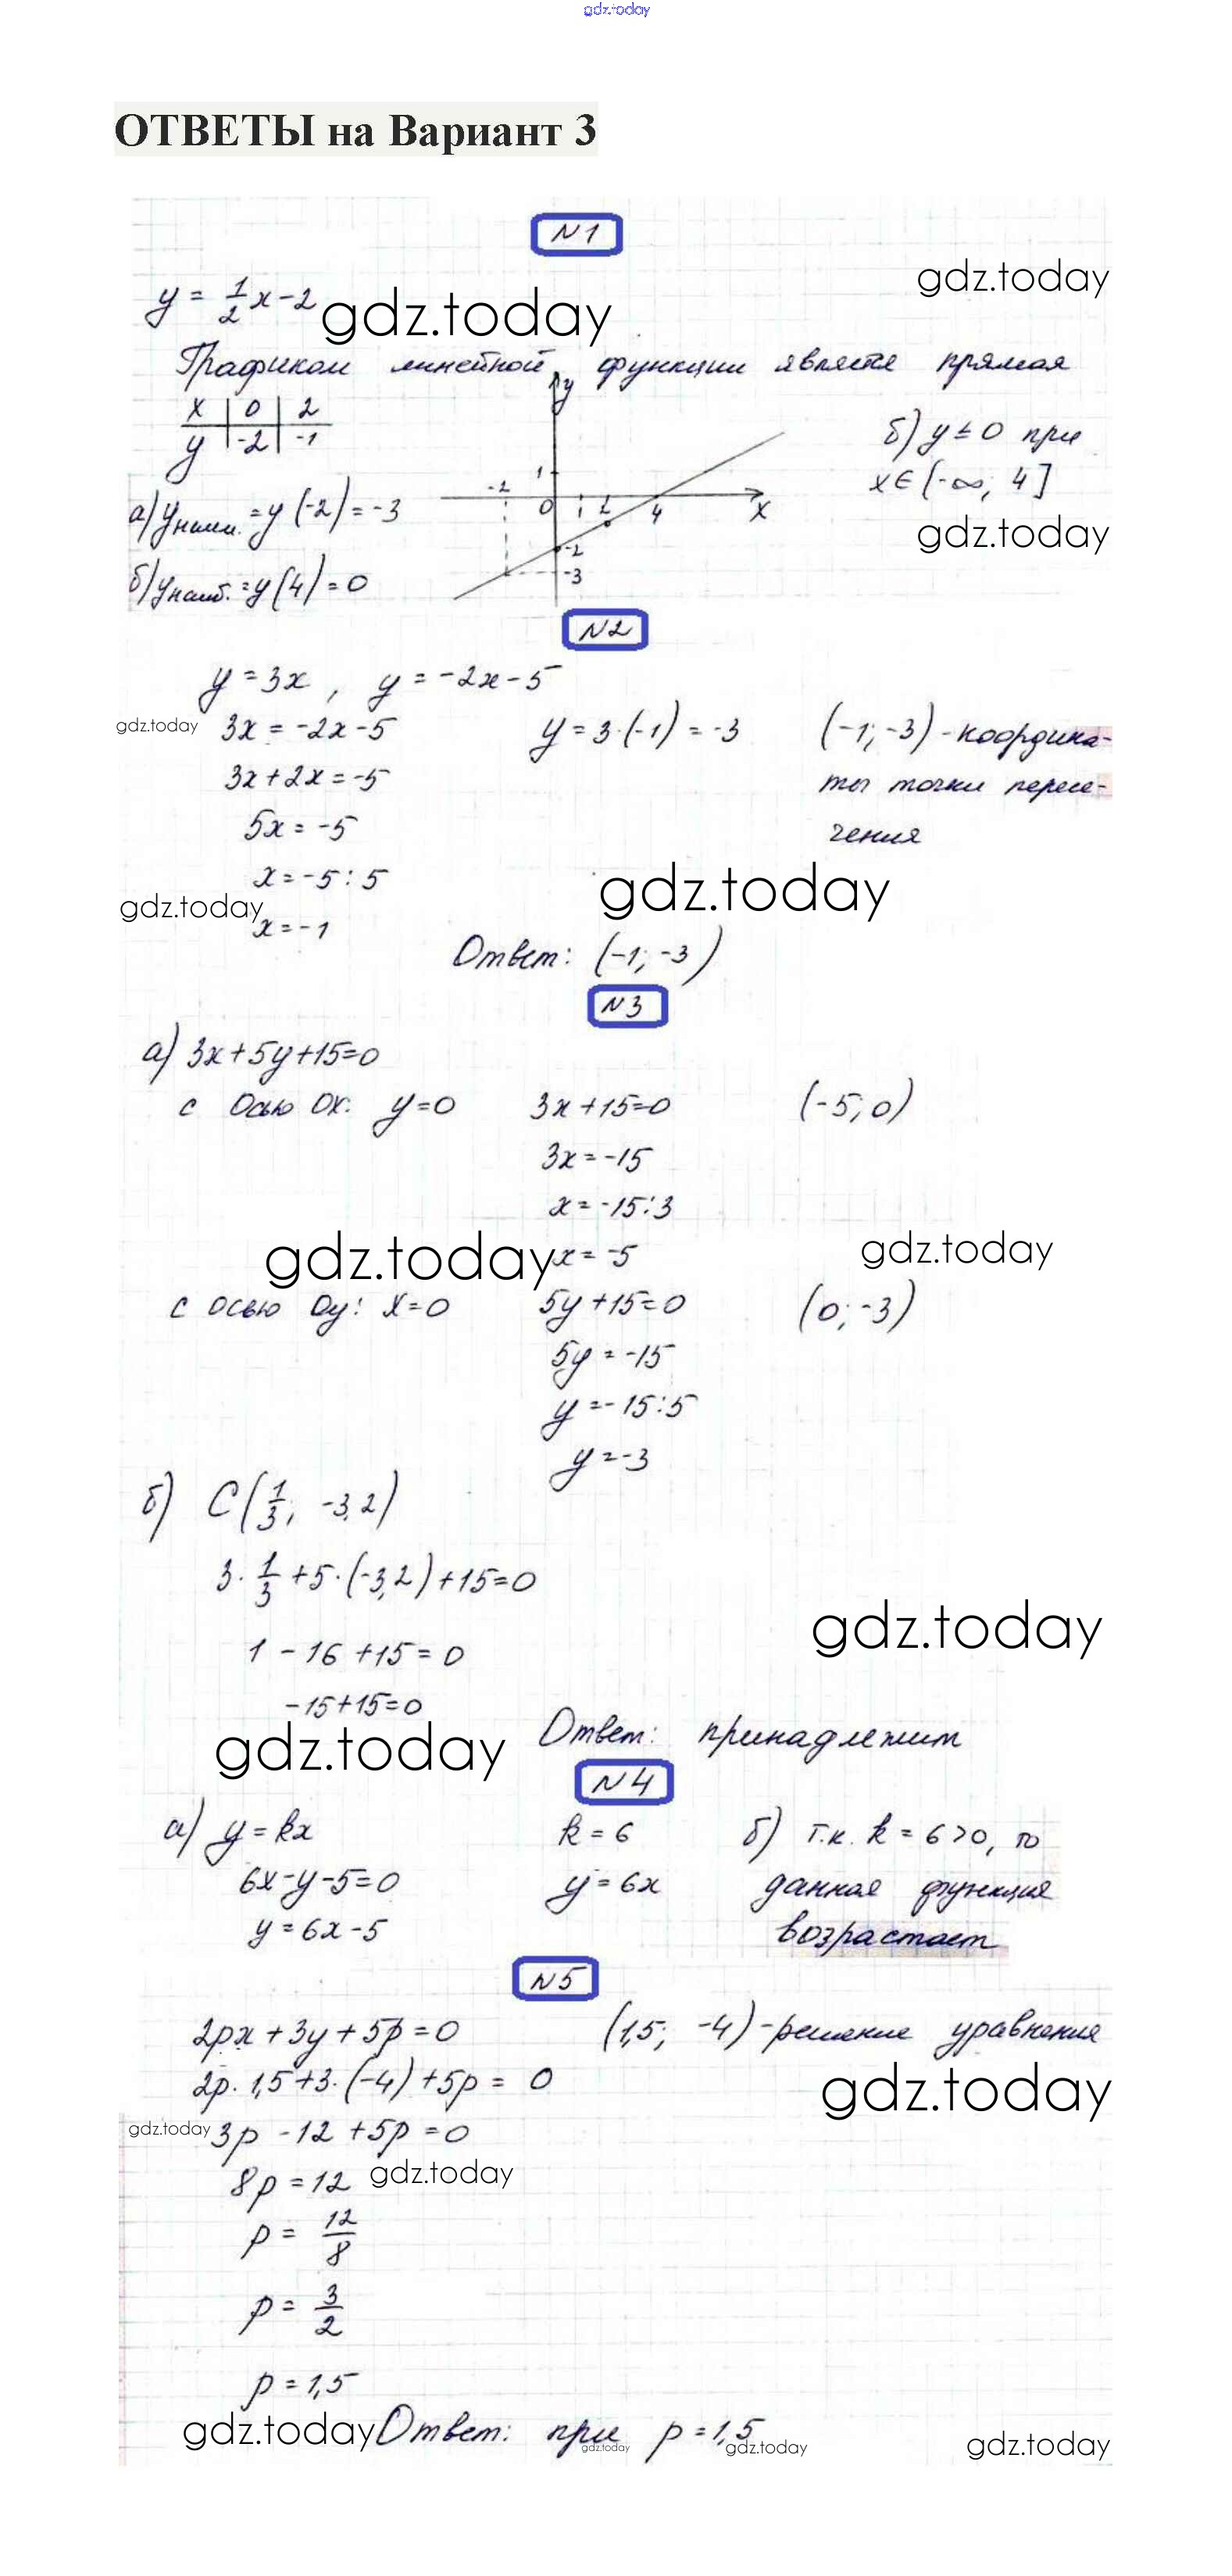 gdz.today
ОТВЕТЫ на Вариант 3
N1
gdz.today
y = 1/2 x - 2
gdz.today
Графиком линейной функции является прямая
x | 0 | 2
y | -2 | -1
y
1
-2
0 1 2 4 x
-2
-3
б) y ≤ 0 при
x ∈ (-∞; 4]
gdz.today
а) y наим. = y(-2) = -3
б) y наиб. = y(4) = 0
N2
y = 3x , y = -2x - 5
gdz.today
3x = -2x - 5
y = 3·(-1) = -3
(-1; -3) - координа-
ты точки пересе-
чения
3x + 2x = -5
5x = -5
x = -5 : 5
gdz.today
gdz.today
x = -1
Ответ: (-1; -3)
N3
а) 3x + 5y + 15 = 0
с осью Ox: y = 0
3x + 15 = 0
(-5; 0)
3x = -15
x = -15 : 3
gdz.today
x = -5
gdz.today
с осью Oy: x = 0
5y + 15 = 0
(0; -3)
5y = -15
y = -15 : 5
y = -3
б) C(1/3; -3,2)
3 · 1/3 + 5·(-3,2) + 15 = 0
gdz.today
1 - 16 + 15 = 0
-15 + 15 = 0
gdz.today
Ответ: принадлежит
N4
а) y = kx
k = 6
б) т.к. k = 6 > 0, то
6x - y - 5 = 0
y = 6x
данная функция
y = 6x - 5
возрастает
N5
2px + 3y + 5p = 0
(1,5; -4) - решение уравнения
2p · 1,5 + 3·(-4) + 5p = 0
gdz.today
gdz.today
3p - 12 + 5p = 0
8p = 12
gdz.today
p = 12/8
p = 3/2
p = 1,5
gdz.today
Ответ: при p = 1,5
gdz.today
gdz.today
gdz.today